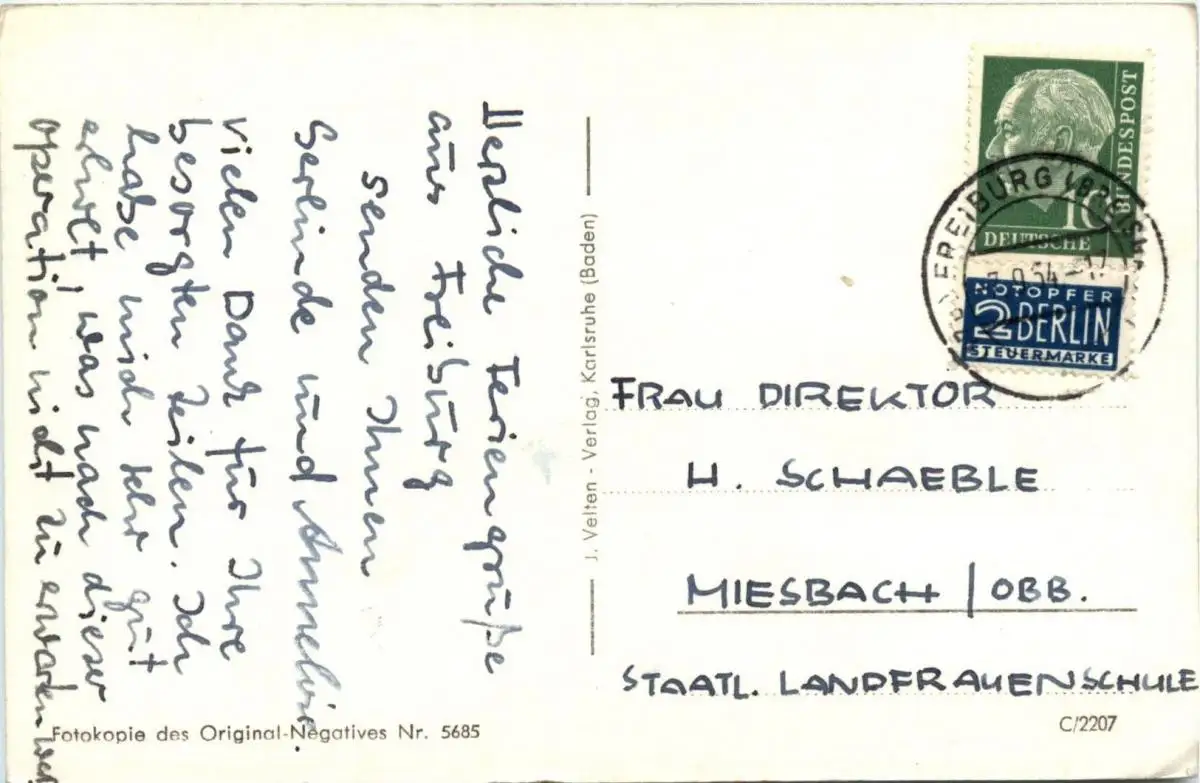 Herzliche Feriengrüße
aus Freiburg
senden Ihnen
Gerlinde und Annelise.
Vielen Dank für Ihre
besorgten Zeilen. Ich
habe mich sehr gut
erholt, was nach dieser
Operation nicht zu erwarten war.
J. Velten - Verlag, Karlsruhe (Baden)
Fotokopie des Original-Negatives Nr. 5685
BUNDESPOST
10
DEUTSCHE
FREIBURG (BREISGAU
9.54-17
NOTOPFER
2 BERLIN
STEUERMARKE
FRAU DIREKTOR
H. SCHAEBLE
MIESBACH / OBB.
STAATL. LANDFRAUENSCHULE
C/2207